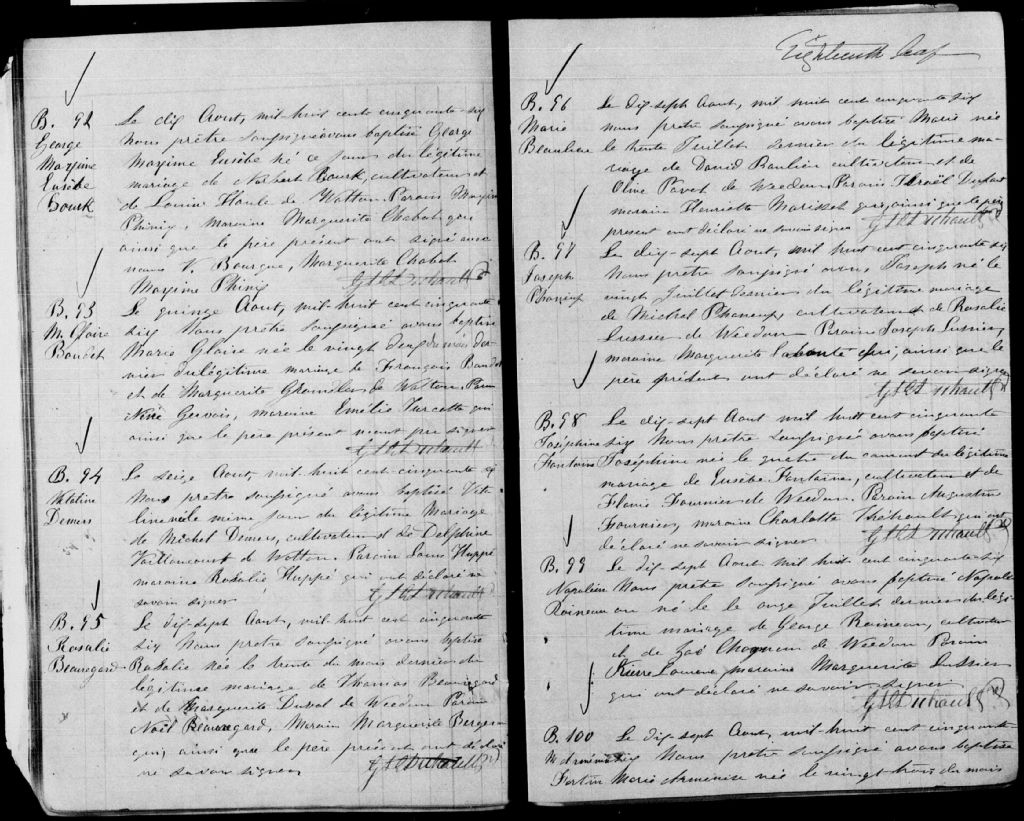 B. 92
George
Maxime
Eusèbe
Bourk
Le dix Aout, mil-huit cent cinquante-six
Nous prêtre soussigné avons baptisé George
Maxime Eusèbe né ce jour du légitime
mariage de Norbert Bourk, cultivateur et
de Louise Houle de Wotton. Parain Maxime
Phinix, Maraine Marguerite Chabot qui
ainsi que le père présent ont signé avec
nous N. Bourque, Marguerite Chabot
Maxime Phinix
B. 93
M. Glaire
Baudet
Le quinze Aout, mil-huit cent cinquante
six Nous prêtre soussigné avons baptisé
Marie Glaire née le vingt deux du mois der-
nier du légitime mariage de François Baudet
et de Marguerite de Wotton. Parain
Gervais, maraine Emélie Turcotte qui
ainsi que le père présent n'ont pu signer
B. 94
Demers
Le seize Aout, mil-huit cent cinquante six
Nous prêtre soussigné avons baptisé
le même jour du légitime Mariage
de Michel Demers, cultivateur et de Delphine
Vaillancourt de Wotton. Parain Louis Huppé
maraine Rosalie Huppé qui ont déclaré ne
savoir signer
B. 95
Rosalie
Beauregard
Le dix-sept Aout, mil-huit cent cinquante
six Nous prêtre soussigné avons baptisé
Rosalie née le trente du mois dernier du
légitime mariage de Thomas Beauregard
et de Marguerite Duval de Weedon Parain
Noël Beauregard, Marain Marguerite Bergeron
qui, ainsi que le père présent ont déclaré
ne savoir signer
Eighteenth leaf
B. 96
Marie
Beaulieu
Le dix-sept Aout, mil huit cent cinquante six
nous prêtre soussigné avons baptisé Marie née
le trente Juillet dernier du légitime ma-
riage de David Baulieu cultivateur et de
Olive de Weedon Parain Israël
maraine Henriette qui, ainsi que le père
present ont déclaré ne savoir signer
B. 97
Joseph
Phaneuf
Le dix-sept Aout, mil huit cent cinquante six
Nous prêtre soussigné avons Joseph né le
vingt Juillet dernier du légitime mariage
de Michel Phaneuf, cultivateur et de Rosalie
Lussier de Weedon - Parain Joseph Lussier,
maraine Marguerite Labonté qui, ainsi que le
père présent ont déclaré ne savoir signer
B. 98
Joséphine
Fontaine
Le dix-sept Aout mil huit cent cinquante
six Nous prêtre soussigné avons baptisé
Joséphine née le quatre du courant du légitime
mariage de Eusèbe Fontaine, cultivateur et de
Flavie Fournier de Weedon. Parain Augustin
Fournier, maraine Charlotte Thétrault qui ont
déclaré ne savoir signer
B. 99
Napoléon
Roineau
Le dix-sept Aout mil huit cent cinquante-six
Nous prêtre soussigné avons baptisé Napolé-
on né le le onze Juillet dernier du légi-
time mariage de George Roineau, cultivateur
et de Zoé de Weedon Parain
Pierre maraine Marguerite Lussier
qui ont déclaré ne savoir signer
B. 100
Fortin
Le dix-sept Aout, mil-huit cent cinquante
six Nous prêtre soussigné avons baptisé
Marie Arménise née le vingt trois du mois